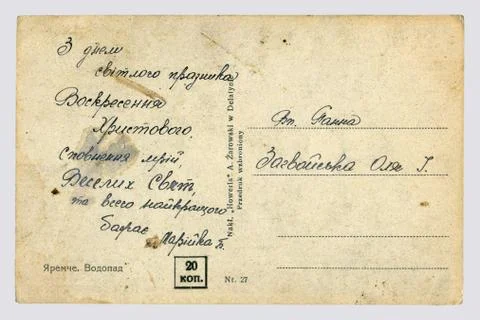 З днем
світлого празника
Воскресення
Христового,
сповнення мрій
Веселих Свят,
та всего найкращого
бажає
Марійка Б.
Яремче. Водопад
20
коп.
Nakł. „Howerla" A. Żarowski w Delatyn
Przedruk wzbroniony
Nr. 27
Вп. Панна
Загвойська Оля І.